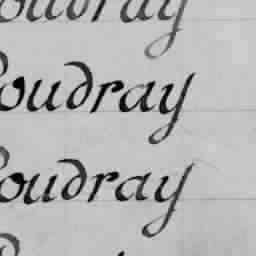 oudray
oudray
oudray